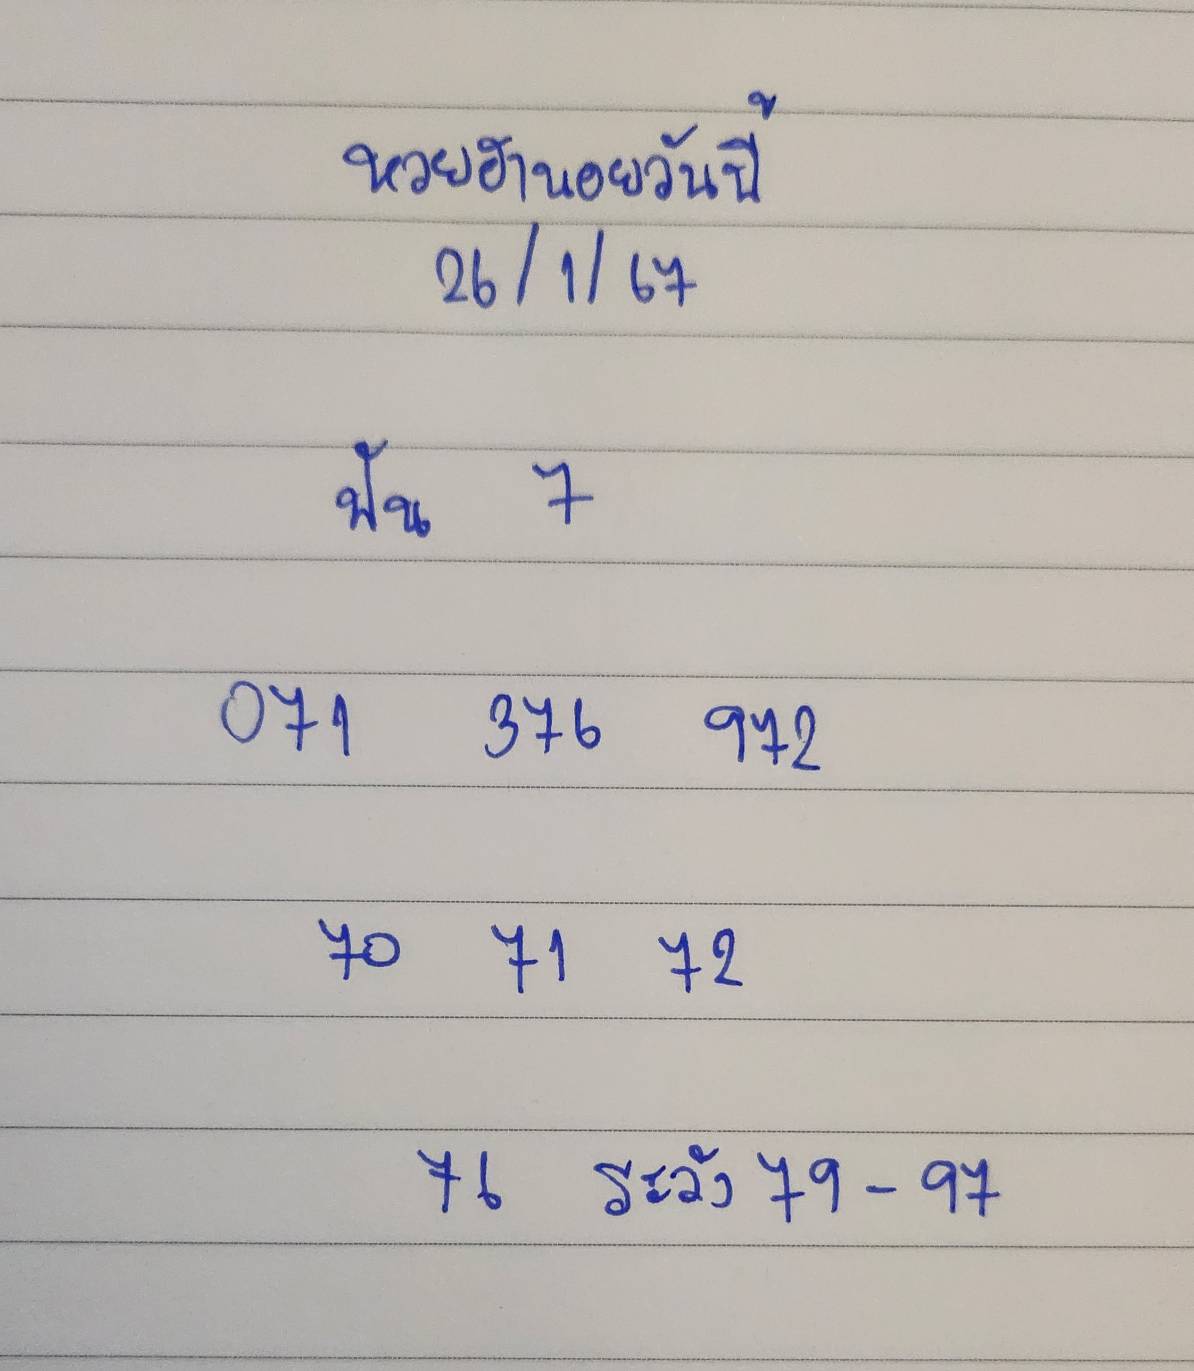 หวยฮานอยวันนี้
26/1/67
ฟัน 7
071 376 972
70 71 72
76 ระวัง 79-97